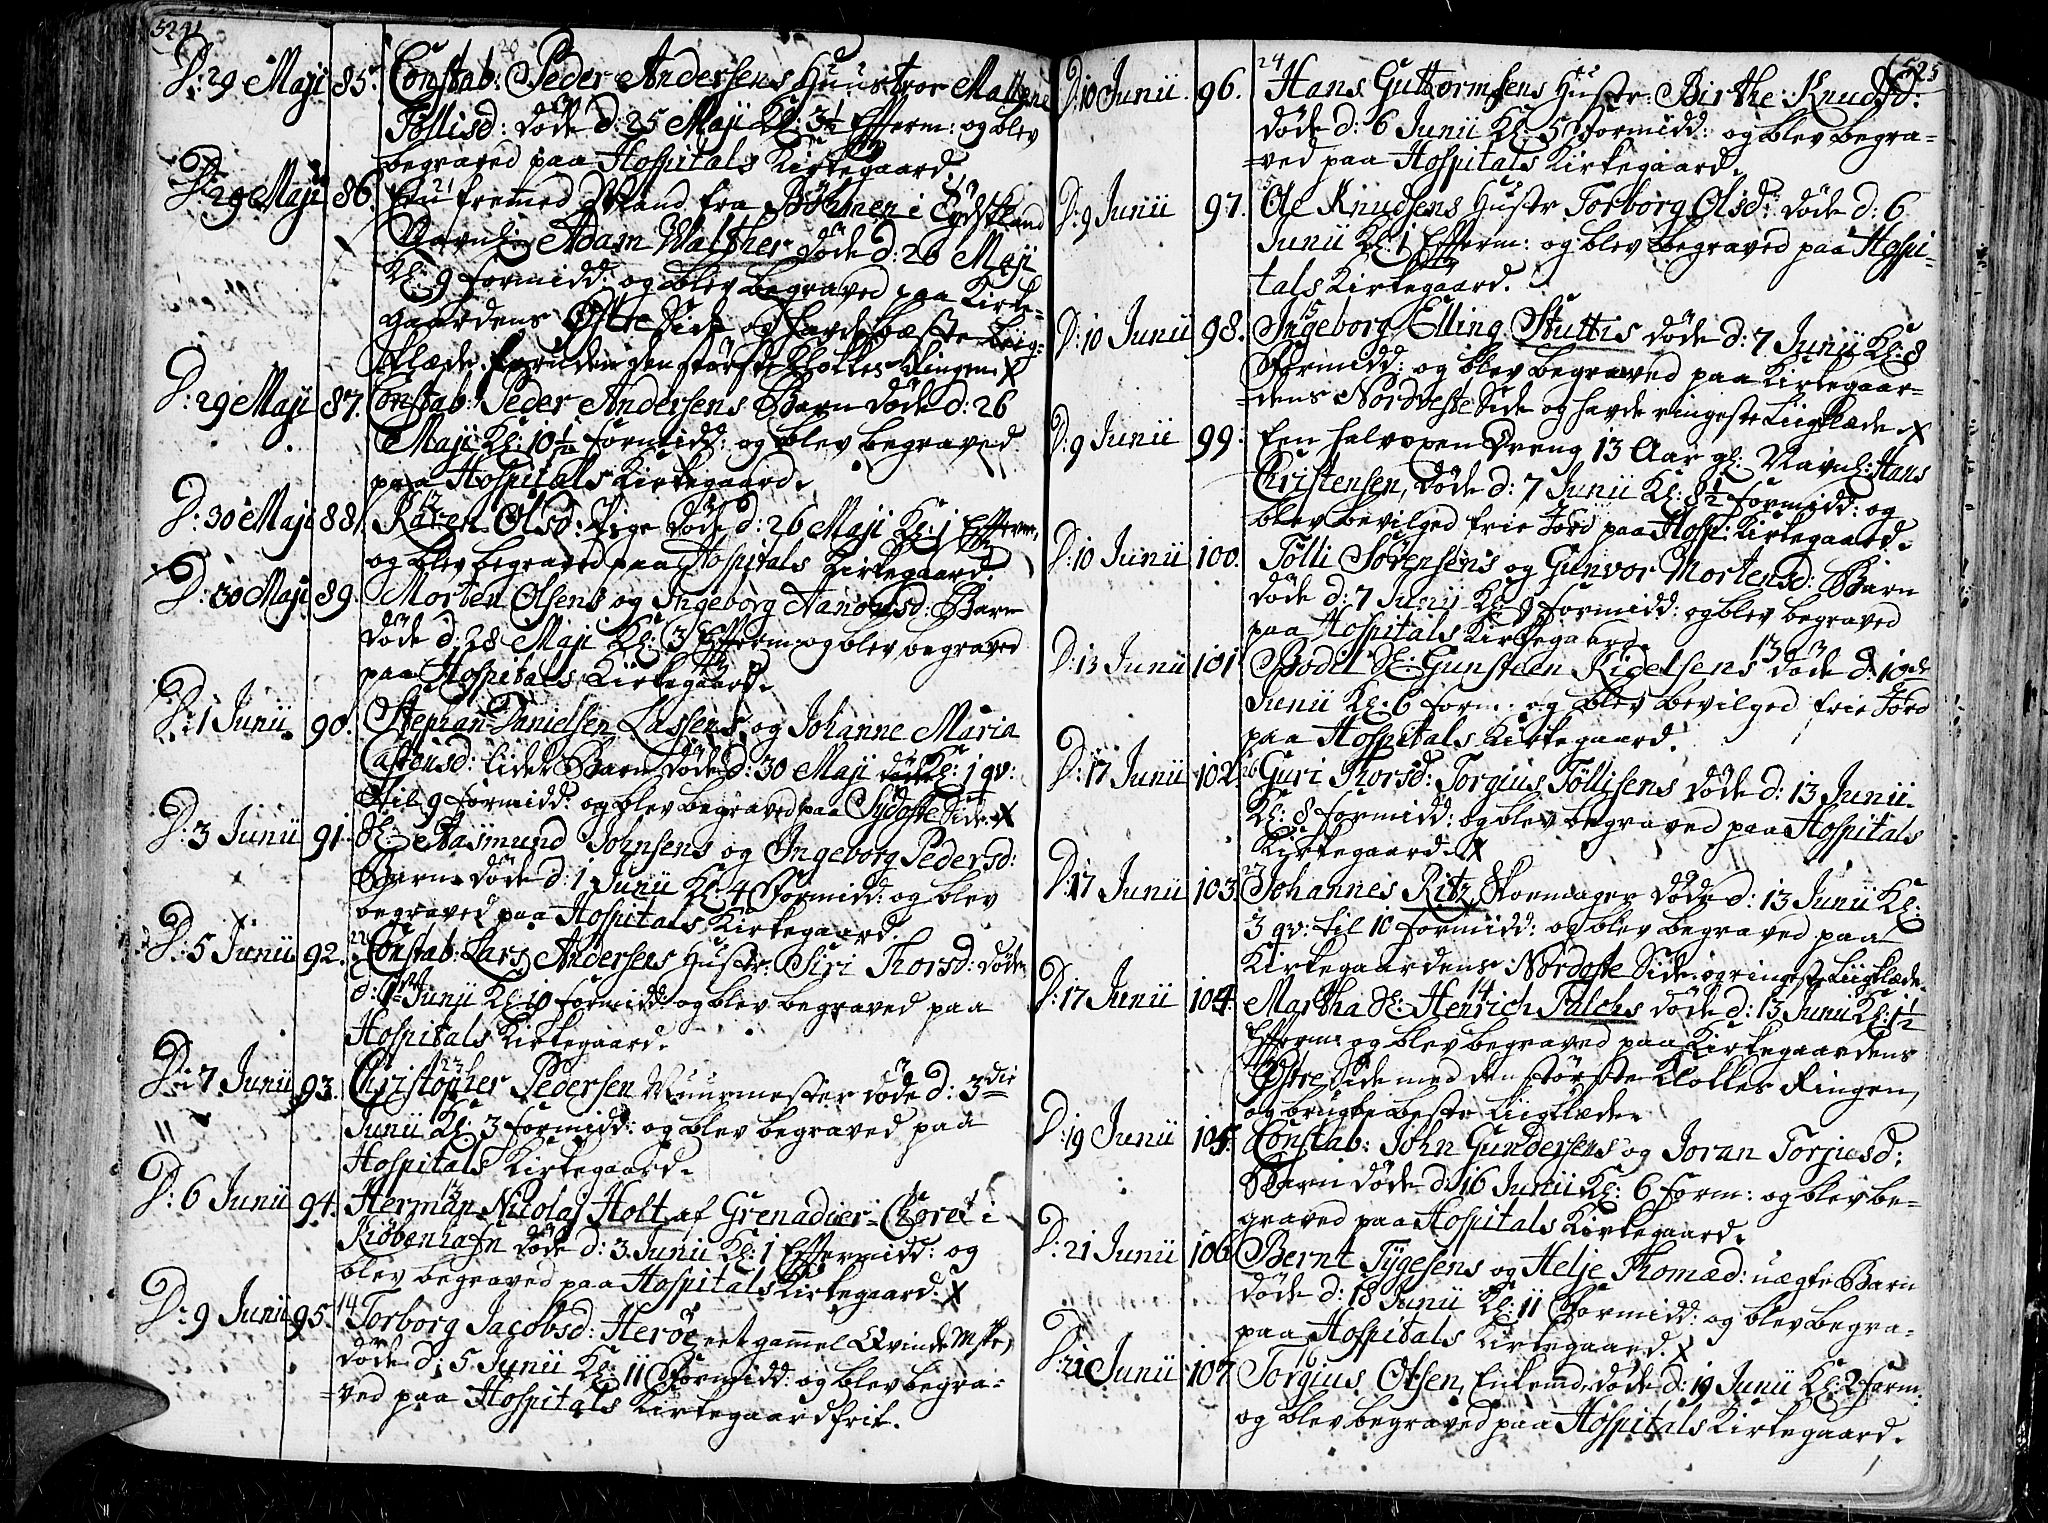 524
D: 29 Maji 85. Constab: Peder Andersens Huustroe Mallene
Tøllisd: døde d: 25 Maji Kl: 3½ Efterm: og blev
begraved paa Hospitals Kirkegaard.
D: 29 Maji 86. Een fremmed Mand fra Bøhmen i Tydskland
Navnl: Adam Walther døde d: 26 Maji
Kl: 9 formidd: og blev begraved paa Kirke-
gaardens Østre Side og havde beste Liig-
klæde foruden den største Klokkes Ringen. X
D: 29 Maji 87. Constab: Peder Andersens Barn døde d: 26
Maji Kl: 10½ formidd: og blev begraved
paa Hospitals Kirkegaard.
D: 30 Maji 88. Karen Olsd: Pige døde d: 26 Maji Kl: 1 Efterm,
og blev begraved paa Hospitals Kirkegaard.
D: 30 Maji 89. Morten Olsens og Ingeborg Aanonsd: Barn
døde d: 28 Maji Kl: 3 Efterm: og blev begraved
paa Hospitals Kirkegaard.
D: 1 Junii 90. Stephan Danielsen Lassens og Johanne Maria
Castensd: lidet Barn døde d: 30 Maji Kl: 1 qv:
til 9 formidd: og blev begraved paa Sydoste Side. X
D: 3 Junii 91. Sl: Aasmund Johnsens og Ingeborg Pedersd:
Barn døde d: 1 Junii Kl: 4 Formidd: og blev
begraved paa Hospitals Kirkegaard.
D: 5 Junii 92. 22 Constab: Lars Andersens Hustr: Siri Thorsd: døde
d: 1ste Junii Kl: 10 formidd: og blev begraved paa
Hospitals Kirkegaard.
D: 7 Junii 93. 23 Christopher Pedersen Muurmester døde d: 3die
Junii Kl: 3 formidd: og blev begraved paa
Hospitals Kirkegaard.
D: 6 Junii 94. 13 Herman Nicolaj Holt af Grenadier-Choret i
Kiøbenhafn døde d: 3 Junii Kl: 1 Eftermidd: og
blev begraved paa Hospitals Kirkegaard. X
D: 9 Junii 95. 14 Torborg Jacobsd: Herøe et gammel Qvinde Mske,
døde d: 5 Junii Kl: 11 Formidd: og blev begra-
-ved paa Hospitals Kirkegaard frit.
525
D: 10 Junii 96. 24 Hans Guttormsens Hustr: Birthe Knudsd:
døde d: 6 Junii Kl: 5 Formidd: og blev begra-
-ved paa Hospitals Kirkegaard.
D: 9 Junii 97. 25 Ole Knudsens Hustr Torborg Olsd: døde d: 6
Junii Kl: 1 Efterm: og blev begraved paa Hospi-
tals Kirkegaard.
D: 10 Junii 98. 15 Ingeborg Elling Stuttis døde d: 7 Junii Kl: 8
Formidd: og blev begraved paa Kirkegaar-
-dens Nordveste Side og havde ringeste Liigklæde. X
D: 9 Junii 99. Een halvoxen Dreng 13 Aar gl: Navnl: Hans
Christensen, døde d: 7 Junii Kl: 8½ formidd: og
blev bevilged frie Jord paa Hosp: Kirkegaard.
D: 10 Junii 100. Tølli Sørensens og Gunvor Mortensd: Barn
døde d: 7 Junij Kl: 9 formidd: og blev begraved
paa Hospitals Kirkegaard.
D: 13 Junii 101. Bodil Sl: Gunsteen Kigelsens 13 døde d: 10de
Junii Kl: 6 form: og blev bevilged frie Jord
paa Hospitals Kirkegaard.
D: 17 Junii 102. 26 Guri Thorsd: Torgius Tøllisens døde d: 13 Junii
Kl: 8 formidd: og blev begraved paa Hospitals
Kirkegaard. X
D: 17 Junii 103. 27 Johannes Ritz, Skomager døde d: 13 Junii Kl:
3 qv: til 10 formidd: og blev begraved paa
Kirkegaardens Nordoste Side og ringeste Liigklæde.
D: 17 Junii 104. Martha Sl: Henrich Falchs døde d: 13 Junii Kl: 1½
Efterm: og blev begraved paa Kirkegaardens
Østre Side med den største Klokkes Ringen,
og brugte beste Liigklæde.
D: 19 Junii 105. Constab: John Gundersens og Joran Torjusd:
Barn døde d: 16 Junii Kl: 6 Form: og blev be-
graved paa Hospitals Kirkegaard.
D: 21 Junii 106. Bernt Tygesens og Helje Thomæd: uægte Barn
døde d: 18 Junii Kl: 11 Formidd: og blev begra-
paa Hospitals Kirkegaard. X
D: 21 Junii 107. 16 Torgius Olsen, Enkemd, døde d: 19 Junii Kl: 2 form:
og blev begraved paa Hospitals Kirkegaard.